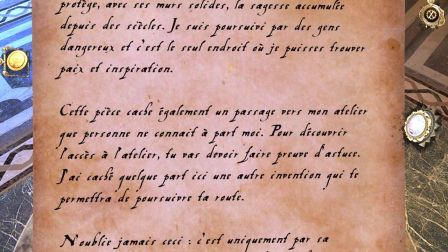 protège, avec ses murs solides, la sagesse accumulée
depuis des siècles. Je suis poursuivi par des gens
dangereux et c'est le seul endroit où je puisse trouver
paix et inspiration.
Cette pièce cache également un passage vers mon atelier
que personne ne connait à part moi. Pour découvrir
l'accès à l'atelier, tu vas devoir faire preuve d'astuce.
J'ai caché quelque part ici une autre invention qui te
permettra de poursuivre ta route.
N'oublie jamais ceci : c'est uniquement par sa